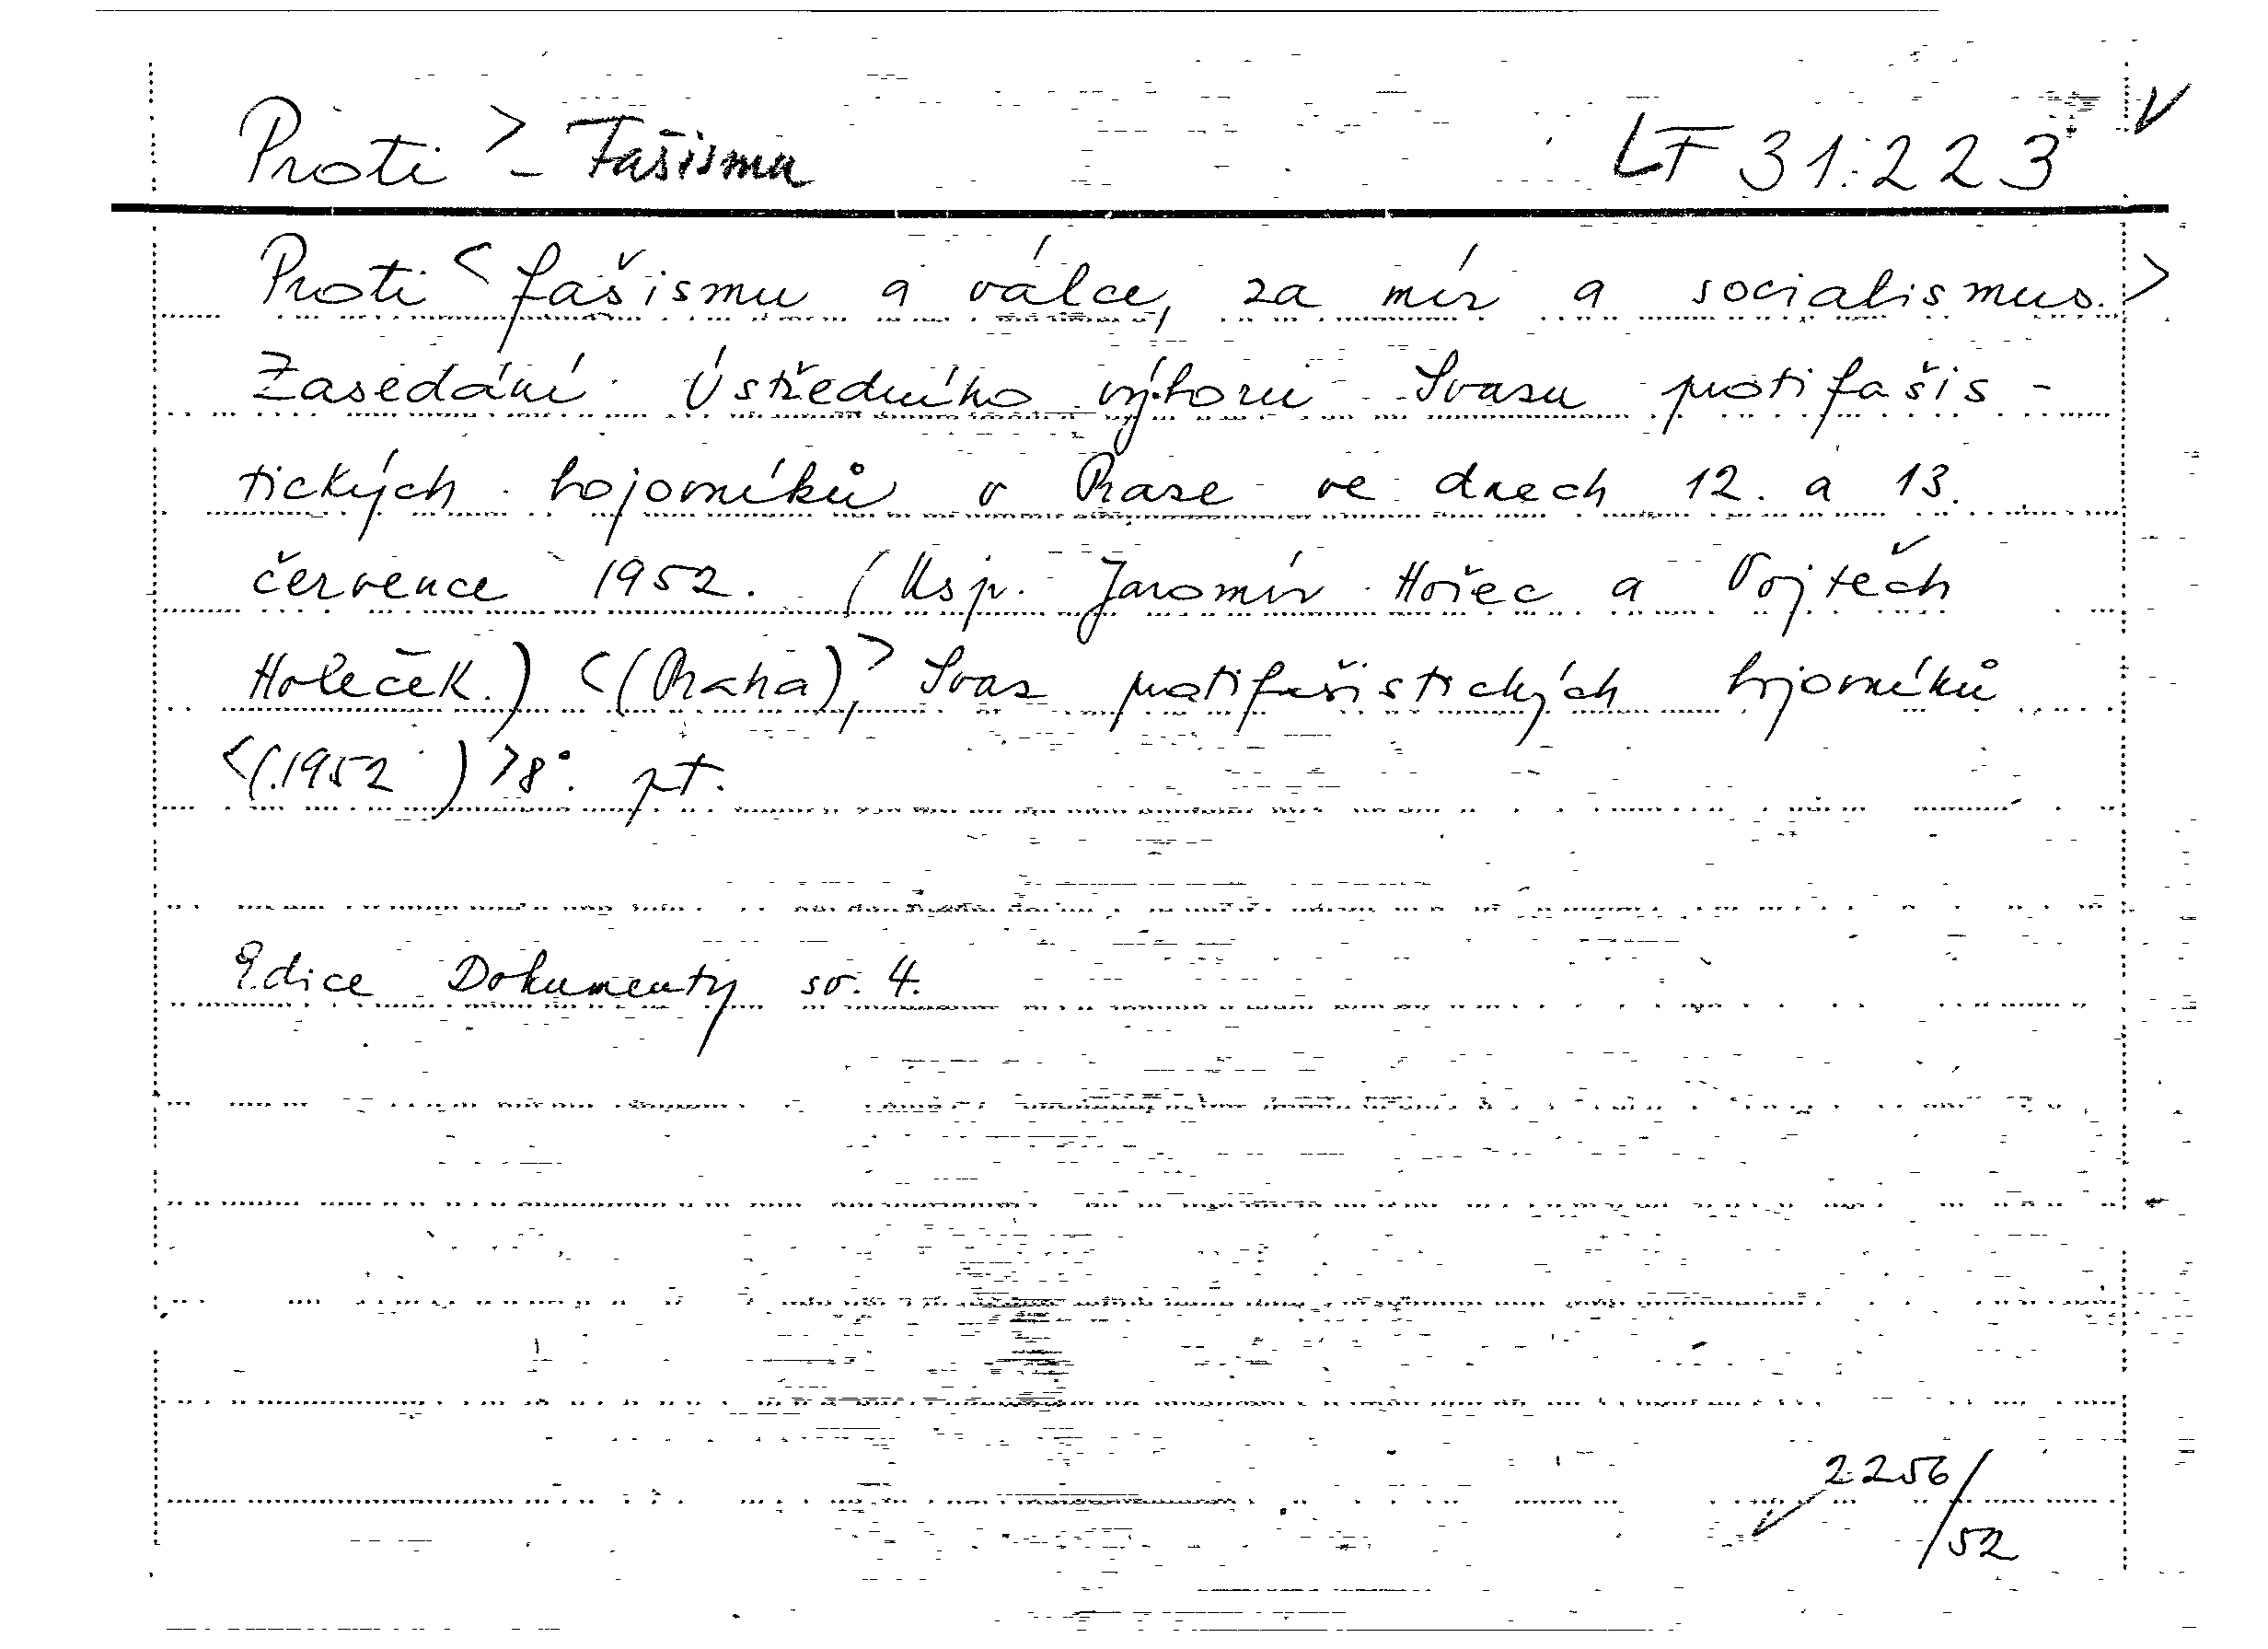 Proti > - Fašismu LF 31:223 V
Proti < fašismu a válce, za mír a socialismus. >
Zasedání Ústředního výboru Svazu protifašis-
tických bojovníků v Praze ve dnech 12. a 13.
července 1952. (Usp. Jaromír Hořec a Vojtěch
Holeček.) < (Praha), > Svaz protifašistických bojovníků
< (1952) > 8°. pt.
Edice Dokumenty sv. 4.
2256/
/52